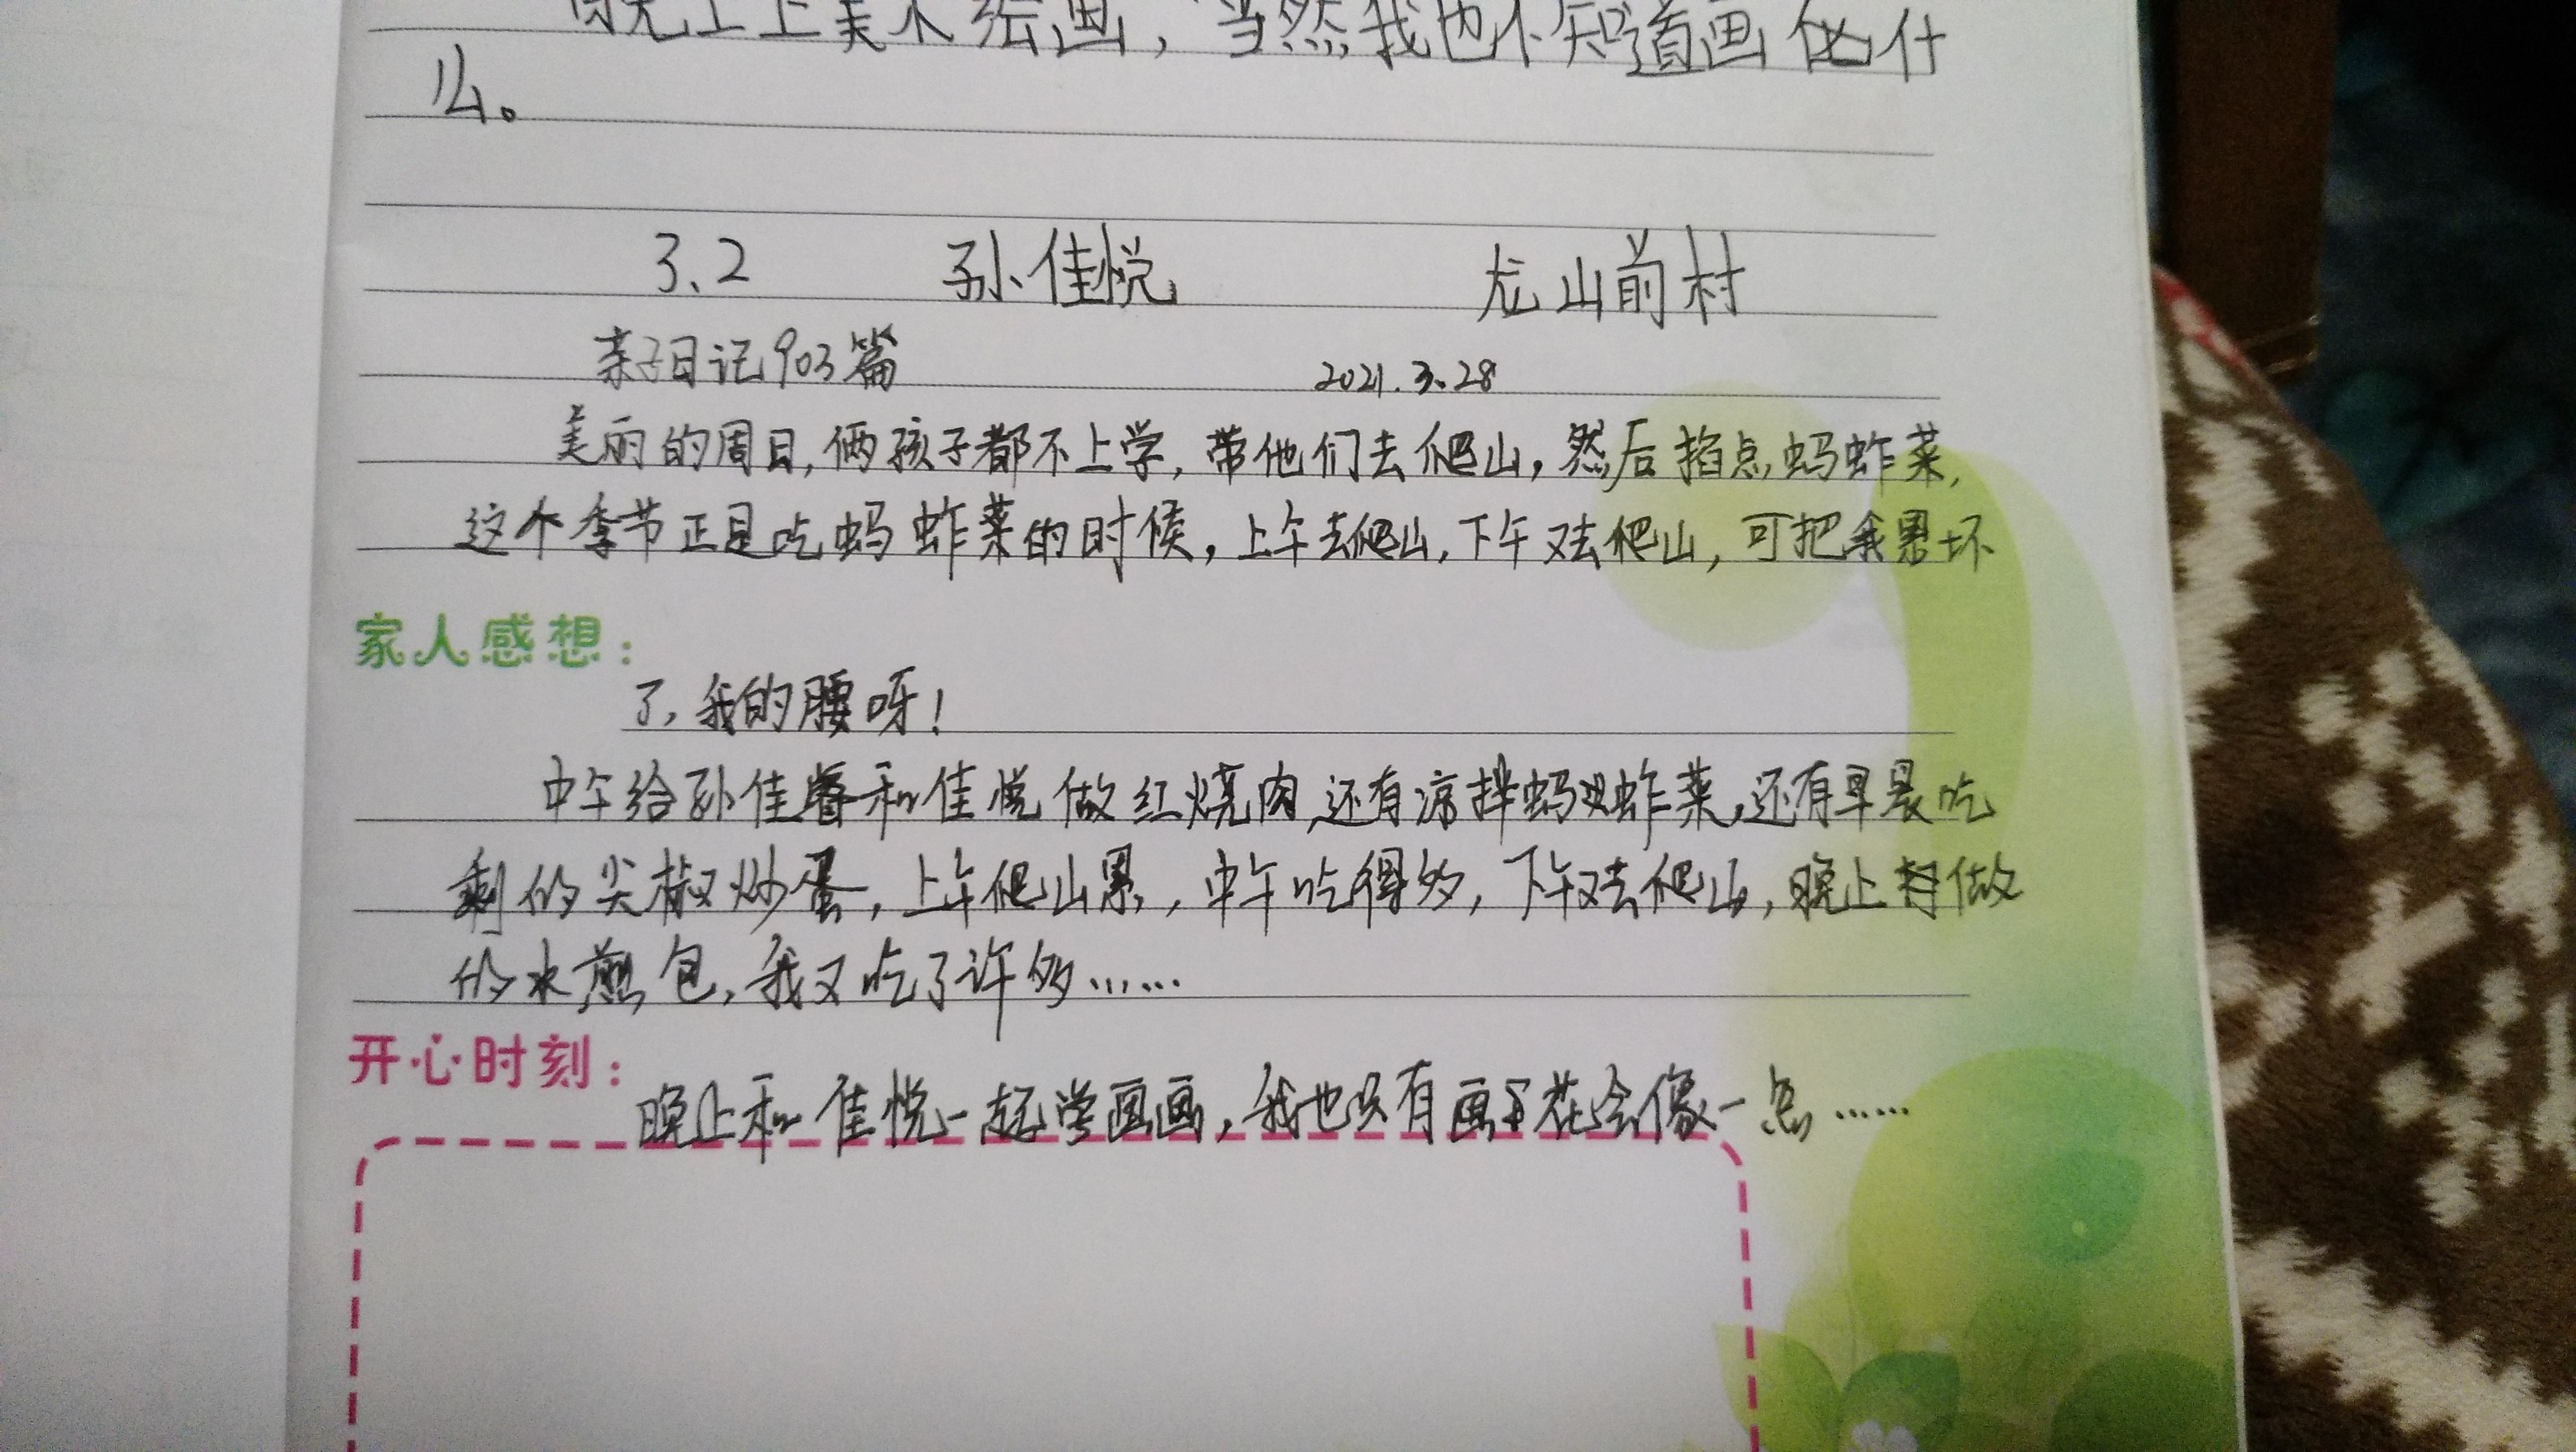 晚上上美术绘画，当然我也不知道画什
么。
3.2 孙佳悦 龙山前村
亲子日记903篇 2021.3.28
美丽的周日,俩孩子都不上学,带他们去爬山,然后掐点蚂蚱菜,
这个季节正是吃蚂蚱菜的时候,上午去爬山,下午又去爬山,可把我累坏
家人感想:
了,我的腰呀!
中午给孙佳睿和佳悦做红烧肉,还有凉拌蚂蚱菜,还有早晨吃
剩的尖椒炒蛋,上午爬山累,中午吃得多,下午又去爬山,晚上做
的水煎包,我又吃了许多……
开心时刻:
晚上和佳悦一起学画画,我也只有画花会像一点……